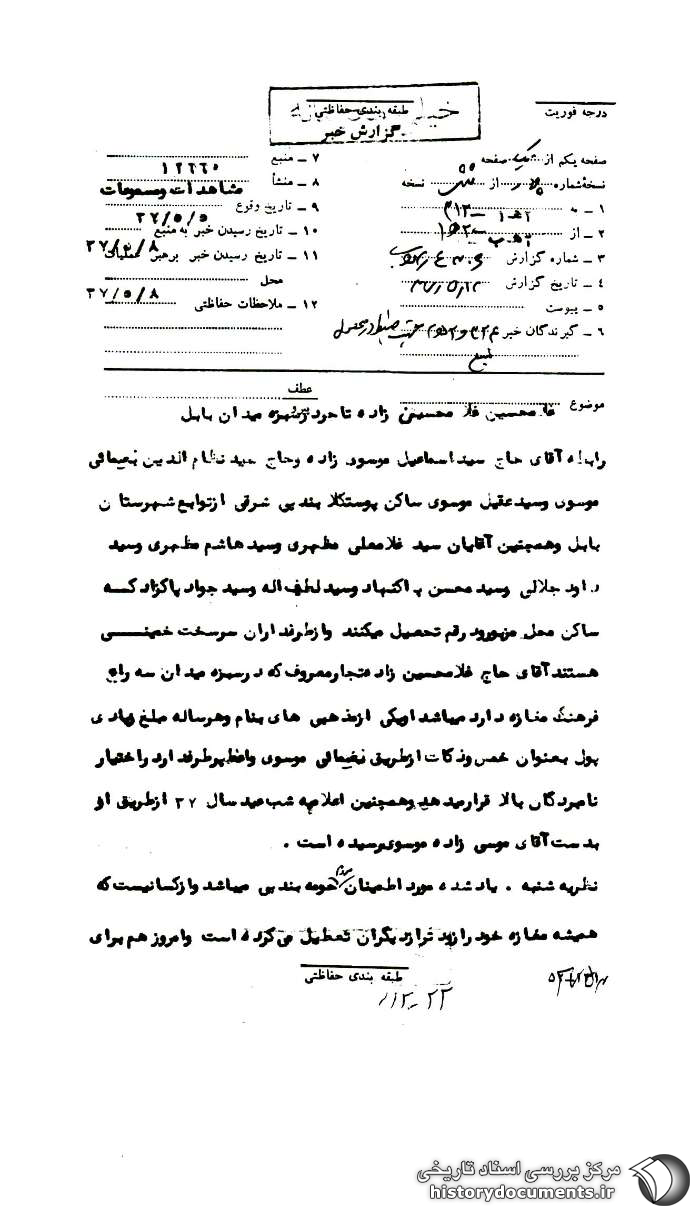 طبقه بندی حفاظتی
گزارش خبر
درجه فوریت
صفحه یکم از یک صفحه
نسخه شماره از نسخه
۱ ـ به ۳۱۲
۲ ـ از
۳ ـ شماره گزارش
۴ ـ تاریخ گزارش
۵ ـ پیوست
۶ ـ گیرندگان خبر
۷ ـ منبع
۸ ـ منشأ مشاهدات ومسموعات
۹ ـ تاریخ وقوع ۳۷/۵/۵
۱۰ ـ تاریخ رسیدن خبر به منبع
۱۱ ـ تاریخ رسیدن خبر برهبر عملیات ۳۷/۵/۸
محل ۳۷/۵/۸
۱۲ ـ ملاحظات حفاظتی
عطف
موضوع غلامحسین غلامحسین زاده تاجر سبزه میدان بابل
رابطه آقای حاج سید اسماعیل موسوی زاده وحاج سید نظام الدین نعیمائی
موسوی وسید عقیل موسوی ساکن پوستکلا بندپی شرقی ازتوابع شهرستان
بابل وهمچنین آقایان سید غلامعلی مظهری وسید هاشم مظهری وسید
داود جلالی وسید محسن وسید لطف اله وسید جواد پاکزاد که
ساکن محل مزبور در قم تحصیل میکنند وازطرفداران سرسخت خمینی
هستند آقای حاج غلامحسین زاده تجارمعروف که درسبزه میدان سه راه
فرهنگ مغازه دارد میباشد اویکی ازمذهبی های بنام وهرساله مبلغ زیادی
پول بعنوان خمس وزکات ازطریق نعیمائی موسوی واعظ دراختیار
نامبردگان بالا قرارمیدهد وهمچنین اعلامیه شب عید سال ۳۷ ازطریق او
بدست آقای موسی زاده موسوی رسیده است .
نظریه شنبه . یاد شده مورد اطمینان مردم حومه بندپی میباشد وازکسانیست که
همیشه مغازه خود رازودترازدیگران تعطیل می کرده است وامروز هم برای
طبقه بندی حفاظتی
۲۳ـ۱۲
مرکز بررسی اسناد تاریخی
historydocuments.ir